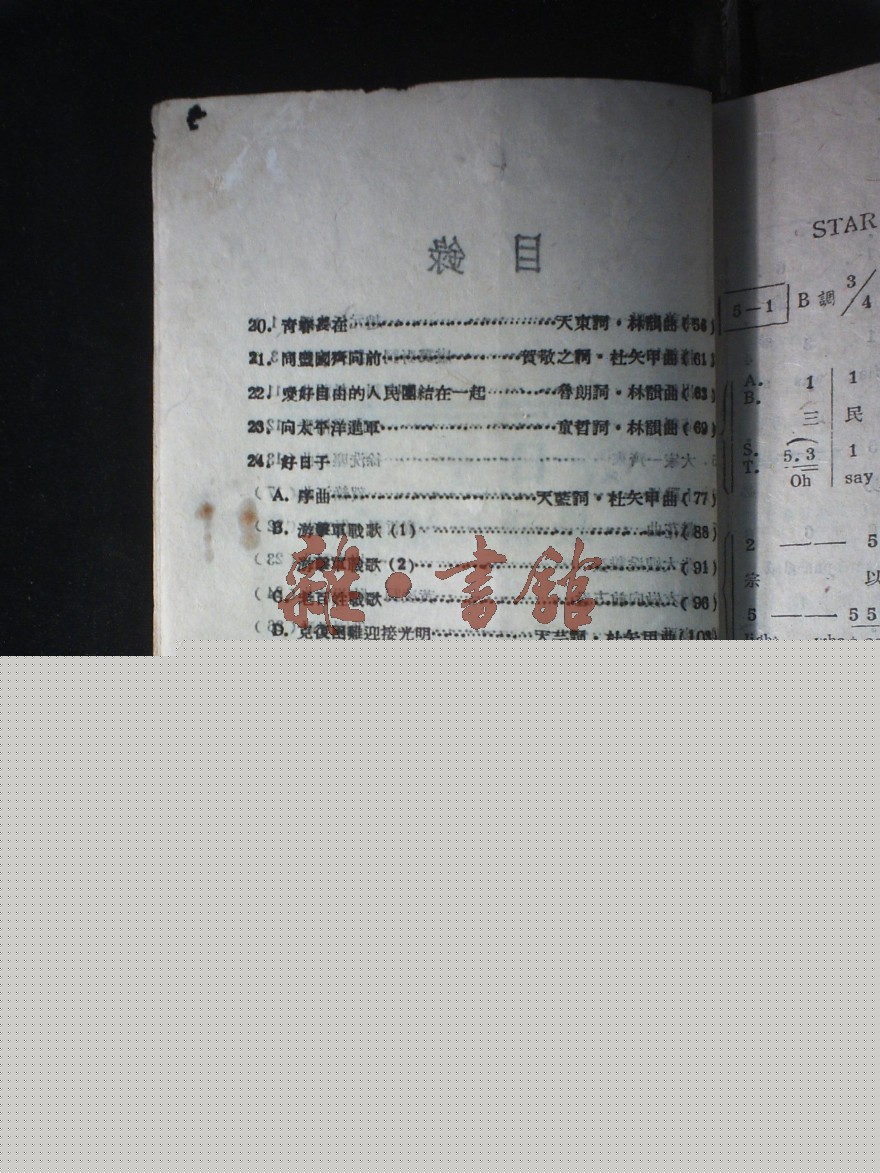 目錄
20. 青春長在……天東詞・林韻曲(56)
21. 同盟國齊向前……賀敬之詞・杜矢甲曲(61)
22. 愛好自由的人民團結在一起……魯朗詞・林韻曲(63)
23. 向太平洋進軍……童哲詞・林韻曲(69)
24. 好日子
A. 序曲……天藍詞・杜矢甲曲(77)
B. 游擊軍戰歌(1)……(88)
游擊軍戰歌(2)……(91)
C. 老百姓戰歌……(96)
D. 克復困難迎接光明……天藍詞・杜矢甲曲(103)
雜・書館
STAR
5—1 B調 3/4
A. B. 1 | 1
三 民
S. T. 5.3 | 1
Oh say
2 —— 5
宗 以
5 —— 5 5